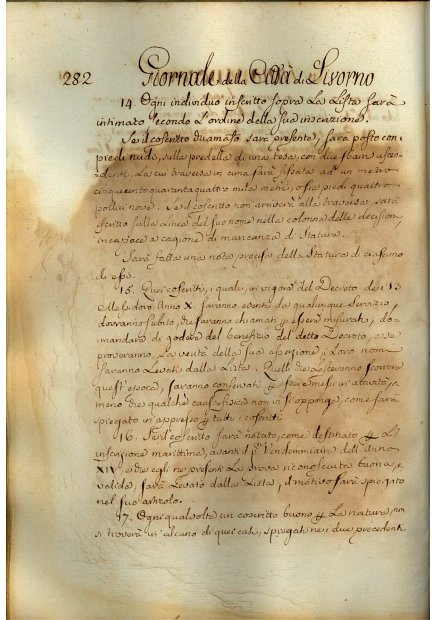 282 Giornale della Città di Livorno
14. Ogni individuo inscritto sopra La Lista sarà
intimato secondo L'ordine della sua inscrizione.
Se il coscritto chiamato sarà presente, sarà posto coi
piedi nudi, sulla predella di una tesa, con due
La cui traversa in cima sarà fissata ad un metro
cinquecento quaranta quattro mila metri, o sia piedi quattro
pollici nove. Se il coscritto non arriverà alla traversa, sarà
scritto sulla Linea del suo nome nella colonna delle decisioni,
incapace a cagione di mancanza di Statura.
Sarà fatta una nota precisa della Statura di ciascuno
di essi.
15. Quei coscritti, i quali, in vigore del Decreto de' 13
Messidoro Anno X. saranno esenti da qualunque Servizio,
dovranno subito, che saranno chiamati essere misurati, do-
mandare di godere del benefizio del detto Decreto, e se
proveranno La verità della sua asserzione, i Loro nomi
saranno Levati dalla Lista. Quelli che Lasceranno scorrere
quest'epoca, saranno conservati in attività, a
meno che qualche causa fisica non vi si opponga, come sarà
spiegato in appresso tutti i coscritti.
16. Se il coscritto sarà notato, come destinato L'I
scrizione marittima, avanti il p.º Vendemmiaire dell'Anno
XIV e che egli ne presenti La prova riconosciuta buona, e
valida, sarà Levato dalla Lista, il motivo sarà spiegato
nel suo articolo.
17. Ogni qualvolta un coscritto buono La natura, non
si troverà in alcuno di quei casi, spiegati nei due precedenti